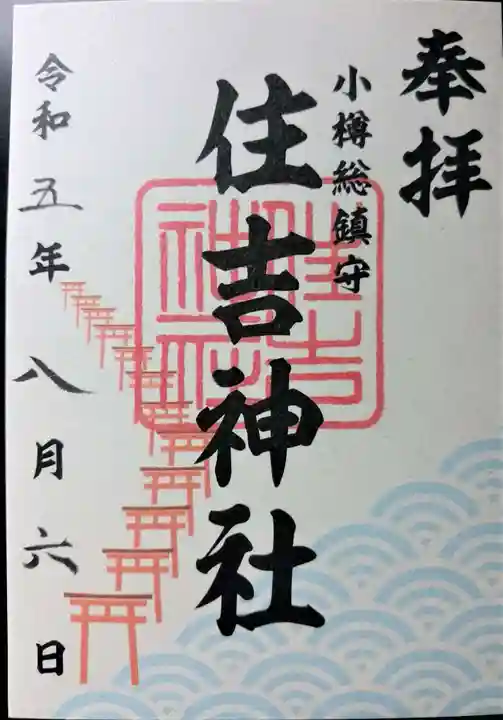 奉拝
小樽総鎮守
住吉神社
住吉
神社
令和五年八月六日